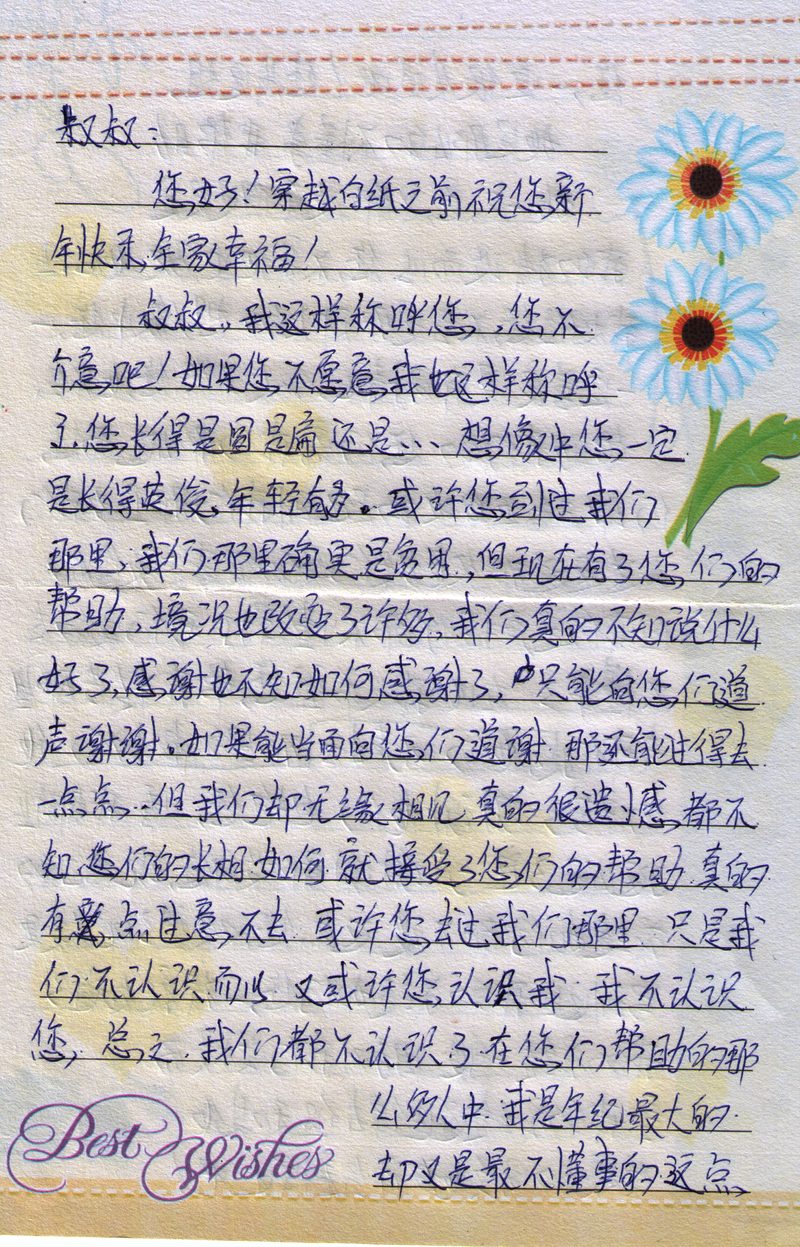 叔叔：
您好！穿越白纸之前祝您新
年快乐,全家幸福！
叔叔,我这样称呼您,您不
介意吧！如果您不愿意,我也这样称呼
了,您长得是圆是扁还是… 想像中您一定
是长得英俊,年轻有多。或许您到过我们
那里,我们那里确实是穷困,但现在有了您们的
帮助,境况也改变了许多,我们真的不知说什么
好了,感谢也不知如何感谢了,只能向您们道
声谢谢。如果能当面向您们道谢.那还能过得去
一点点…但我们却无缘相见,真的很遗憾,都不
知您们的长相如何.就接受了您们的帮助.真的
有点过意不去.或许您去过我们那里.只是我
们不认识而以.又或许您认识我.我不认识
您.总之.我们都不认识了.在您们帮助的那
么多人中.我是年纪最大的.
却又是最不懂事的.这点
Best Wishes